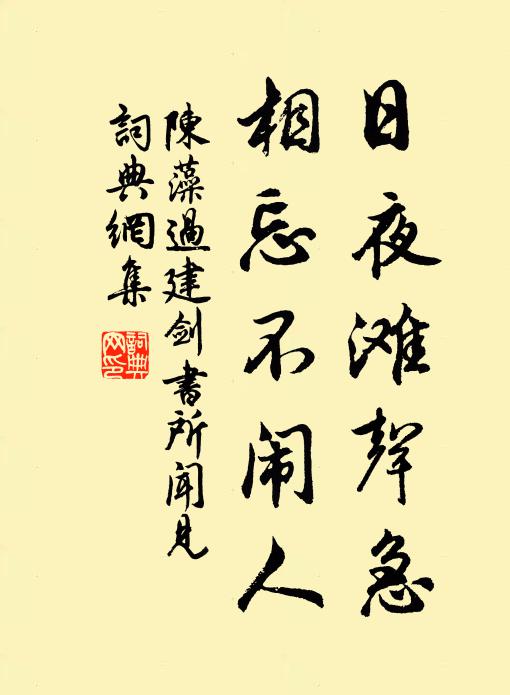 日夜滩聲急
相忘不闹人
陳藻過建劍書所聞見
詞典網集
詞典网印